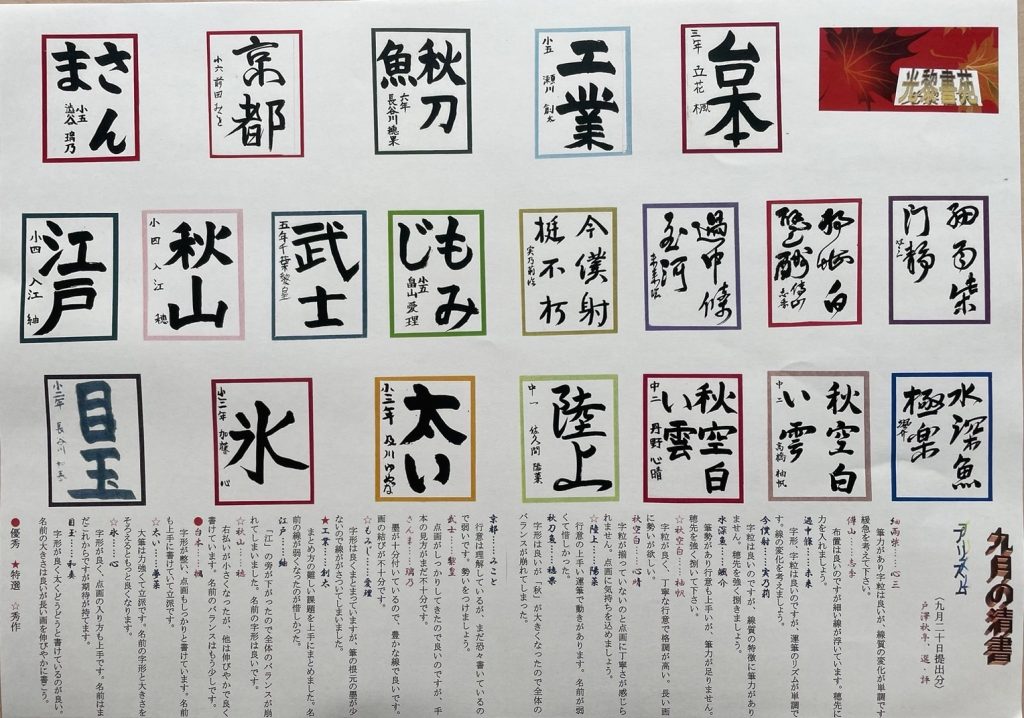 光黎書苑
台本
三年 立花 楓
工業
小五 瀬川 創太
秋刀
魚
六年 長谷川 穂果
京都
小六 前田 みこと
さん
ま
小五 澁谷 璃乃
細雨染
门静
過中條
玉河
未来
今僕射
挺不朽
実乃莉
もみ
じ
小五 畠山 愛理
武士
五年 千葉 黎皇
秋山
小四 入江 穂
江戸
小四 入江 紬
水深魚
極楽
颯介
秋空白
い雲
中二 高橋 柚帆
秋空白
い雲
中二 丹野 心晴
陸上
中一 佐久間 陽菜
太い
小三年 及川 ゆめな
氷
小二年 加藤 心
目玉
小二年 長谷川 和奏
九月の清書
(九月二十日提出分)
戸澤秋亭、選・評
細雨染……心三
筆力があり字粒は良いが、線質の変化が単調です
緩急を考えて下さい。
傅山……志季
布置は良いのですが細い線が浮いています。穂先に
力を入れましょう。
過中條……未来
字形、字粒は良いのですが、運筆のリズムが単調で
す。線の変化を考えましょう。
今僕射……実乃莉
字粒は良いのですが、線質の特徴に筆力があり
ません。穂先を強く捌きましょう。
水深魚……颯介
筆勢があり行意も上手いが、筆力が足りません。
穂先を強く捌いて下さい。
☆秋空白……柚帆
字粒が良く、丁寧な行意で格調が高い。長い画
に勢いが欲しい。
秋空白……心晴
字粒が揃っていないのと点画に丁寧さが感じら
れません。点画に気持ちを込めましょう。
☆陸上……陽菜
行意の上手い運筆で動きがあります。名前が弱
くて惜しかった。
秋刀魚……穂果
字形は良いが「秋」が大きくなったので全体の
バランスが崩れてしまった。
京都……みこと
行意は理解しているが、まだ恐々書いているの
で弱いです。勢いをつけましょう。
武士……黎皇
点画がしっかりしてきたので良いのですが、手
本の見方がまだ不十分です。
さんま……璃乃
墨が十分付いているので、豊かな線で良いです。
画の結びが不十分です。
☆もみじ……愛理
字形は良くまとまっていますが、筆の根元の墨が少
ないのでで線ががさついてしまいました。
★工業……創太
まとめ方の難しい課題を上手にまとめました。名
前の線が弱くなったのが惜しかった。
江戸……紬
「江」の旁が下がったので全体のバランスが崩
れてしまいました。名前の字形は良いです。
☆秋山……穂
右払いが小さくなったが、他は伸びやかで良く
書けています。名前のバランスはもう少しです。
●台本……楓
字形が整い、点画もしっかりと書けています。名前
も上手に書けていて立派です。
☆太い……夢菜
大筆は力強くて立派です。名前の字形と大きさを
そろえるともっと良くなります。
☆氷……心
字形が良く、点画の入り方も上手です。名前はま
だこれからですが期待が持てます。
目玉……和奏
字形が良く太くどうどうと書けているのが良い。
名前の大きさは良いが長い画を伸びやかに書こう。
●優秀 ★特選 ☆秀作